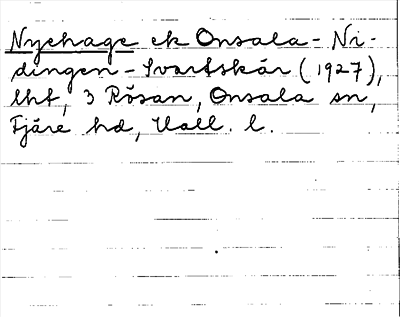 Nyehage ek Onsala-Ni-
dingen-Svartskär (1927),
lht, 3 Rösan, Onsala sn,
Fjäre hd, Hall. l.